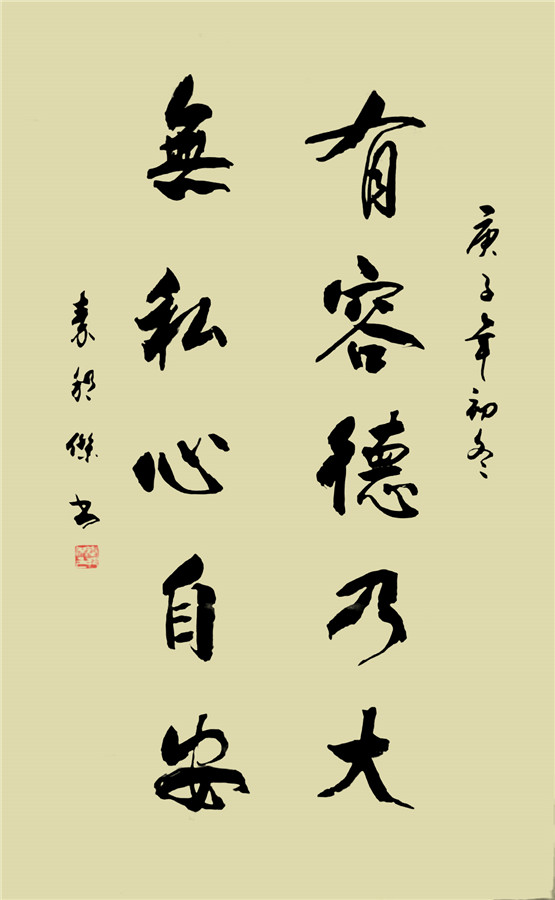 庚子年初冬
有容德乃大
無私心自安
袁
傑书